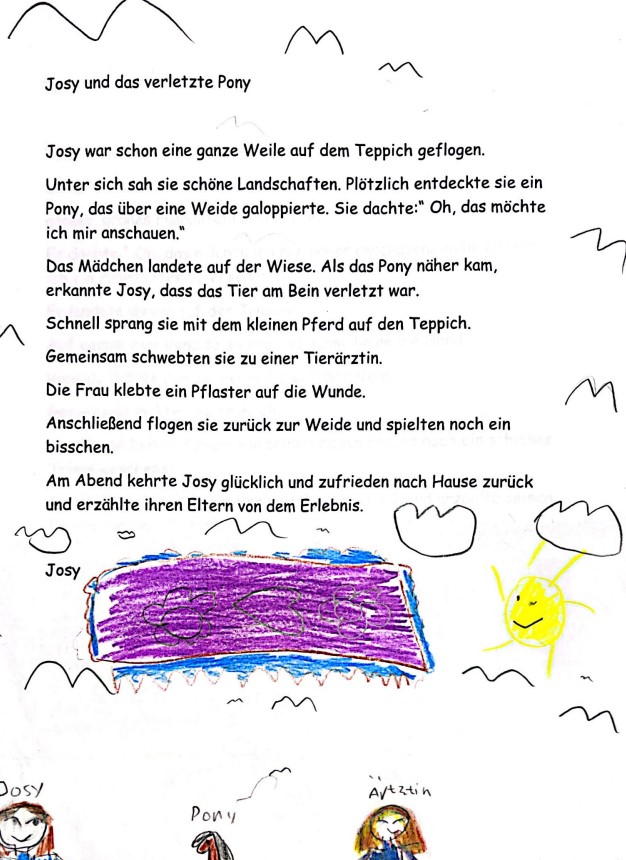 Josy und das verletzte Pony
Josy war schon eine ganze Weile auf dem Teppich geflogen.
Unter sich sah sie schöne Landschaften. Plötzlich entdeckte sie ein
Pony, das über eine Weide galoppierte. Sie dachte:“ Oh, das möchte
ich mir anschauen.“
Das Mädchen landete auf der Wiese. Als das Pony näher kam,
erkannte Josy, dass das Tier am Bein verletzt war.
Schnell sprang sie mit dem kleinen Pferd auf den Teppich.
Gemeinsam schwebten sie zu einer Tierärztin.
Die Frau klebte ein Pflaster auf die Wunde.
Anschließend flogen sie zurück zur Weide und spielten noch ein
bisschen.
Am Abend kehrte Josy glücklich und zufrieden nach Hause zurück
und erzählte ihren Eltern von dem Erlebnis.
Josy
Josy
Pony
Ärtztin